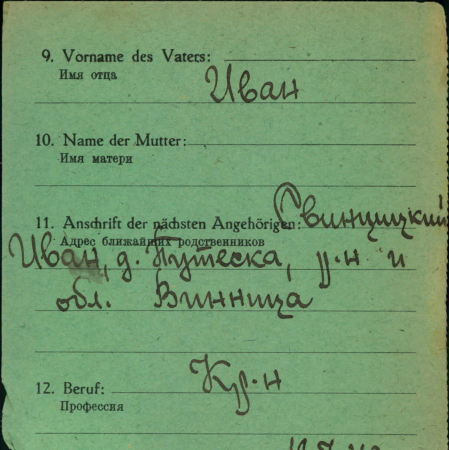 9. Vorname des Vaters:
Имя отца
Иван
10. Name der Mutter:
Имя матери
11. Anschrift der nächsten Angehörigen: Свинцицкий
Адрес ближайших родственников
Иван, д. Путеска, р-н и
обл. Винница
12. Beruf: Кр-н
Профессия